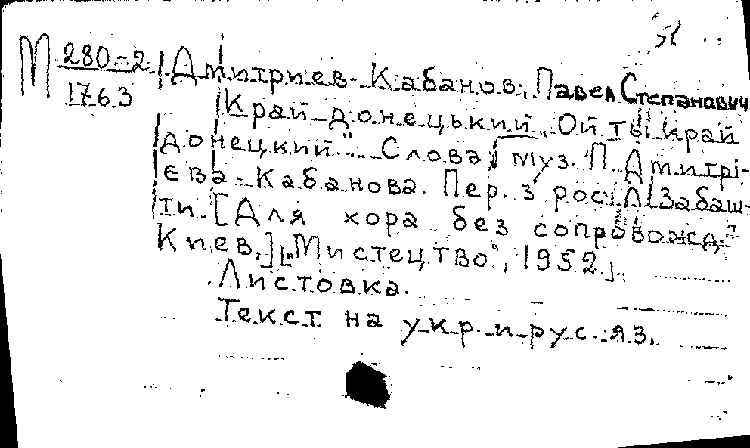 М 280-2
1763
Дмитриев-Кабанов, Павел Степанович
Край донецький. „Ой ты край
донецкий". Слова и муз. П. Дмитрі-
єва-Кабанова. Пер. з рос. Л. Забаш-
ти. [Для хора без сопровожд.]
Киев, [„Мистецтво", 1952].
Листовка.
Текст на укр. и рус. яз.